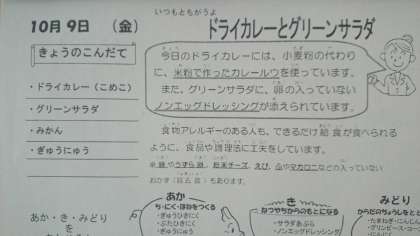 いつもとちがうよ
10月9日 （金）
ドライカレーとグリーンサラダ
きょうのこんだて
・ドライカレー（こめこ）
・グリーンサラダ
・みかん
・ぎゅうにゅう
今日のドライカレーには、小麦粉の代わり
に、米粉で作ったカレールウを使っています。
また、グリーンサラダに、卵の入っていない
ノンエッグドレッシングが添えられています。
食物アレルギーのある人も、できるだけ給食が食べられる
ように、食品や調理法に工夫をしています。
うずら卵、粉末チーズ、えび、
マカロニなどの入っていない
おかず もあります。
あか・き・みどり
あか
ち・にく・ほねをつくる
・ぎゅうひきにく
・ぶたひきにく
・ぎゅうにゅう
き
ねつやちからのもとになる
・サラダあぶら
・ノンエッグドレッシング
みどり
からだのちょうしをととの
・たまねぎ・にんじん
・グリンピース